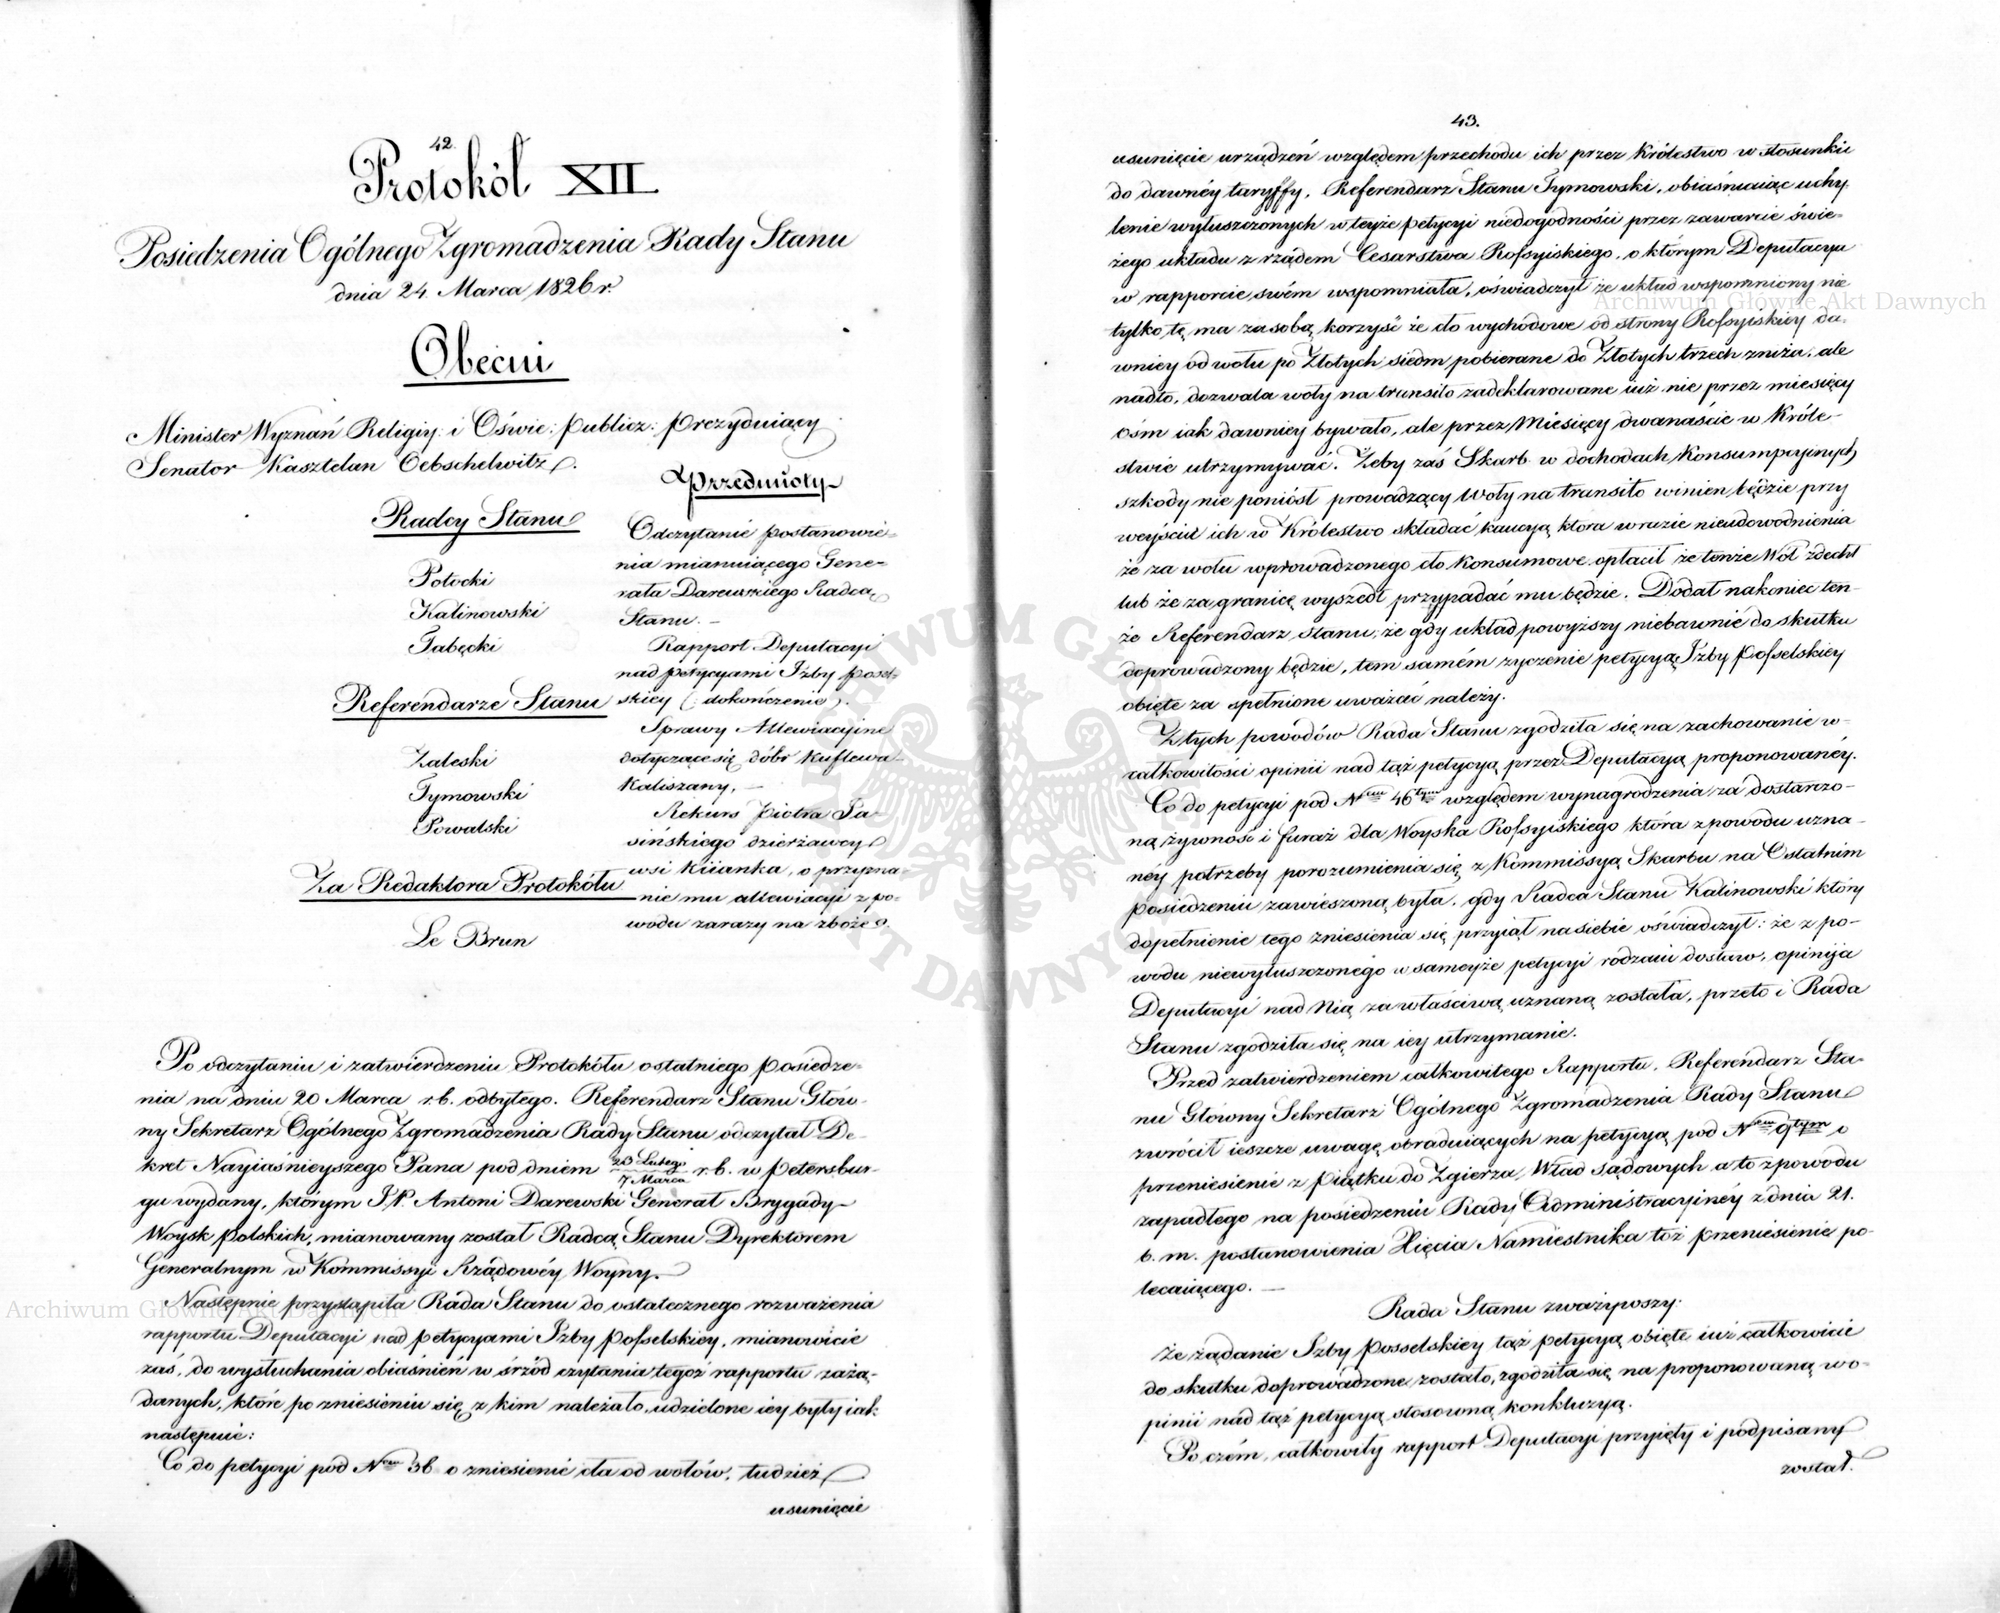 42.
Protokół XII
Posiedzenia Ogólnego Zgromadzenia Rady Stanu
dnia 24. Marca 1826 r.
Obecni
Minister Wyznań Religiy: i Oświe: publicz: prezyduiący
Senator Kasztelan Oebschelwitz.
Radcy Stanu
Potocki
Kalinowski
Tabęcki
Referendarze Stanu
Zaleski
Tymowski
Powalski
Za Redaktora Protokółu
Le Brun
Przedmioty
Odczytanie postanowie-
nia mianuiącego Gene-
rała Darewskiego Radcą
Stanu. —
Rapport Deputacyi
nad petycyami Izby posel-
skiey (: dokończenie).
Sprawy Allewiacyine
dotyczące się dóbr Kuflewa
Kaliszany. —
Rekurs Piotra Ja-
sińskiego dzierżawcy
wsi Kiianka, o przyzna-
nie mu allewiacyi z po-
wodu zarazy na zboże.
Po odczytaniu i zatwierdzeniu Protokółu ostatniego posiedze-
nia na dniu 20 Marca r.b. odbytego. Referendarz Stanu Głów-
ny Sekretarz Ogólnego Zgromadzenia Rady Stanu odczytał De-
kret Nayiaśnieyszego Pana pod dniem 23 Lutego / 7 Marca r.b. w Petersbur-
gu wydany, którym J.P. Antoni Darewski Generał Brygady
Woysk Polskich, mianowany został Radcą Stanu Dyrektorem
Generalnym w Kommissyi Rządowéy Woyny.
Następnie przystąpiła Rada Stanu do ostatecznego rozważenia
rapportu Deputacyi nad petycyami Izby Poselskiey, mianowicie
zaś, do wysłuchania obiaśnień w śrzód czytania tegoż rapportu zażą-
danych, które po zniesieniu się z kim należało, udzielone iey były iak
następuie:
Co do petycyi pod Nrem 36 o zniesienie cła od wołów, tudzież
usunięcie
43.
usunięcie urządzeń względem przechodu ich przez Królestwo w stosunku
do dawnéy taryffy, Referendarz Stanu Tymowski, obiaśniaiąc uchy-
lenie wyłuszczonych w teyże petycyi niedogodności przez zawarcie świe-
żego układu z rządem Cesarstwa Rossyiskiego, o którym Deputacya
w rapporcie swém wspomniała, oświadczył że układ wspomniony nie
tylko tę ma za sobą korzyść że cło wychodowe od strony Rossyiskiey da-
wniey od wołu po Złotych siedm pobierane do Złotych trzech zniża, ale
nadto, dozwala woły na transito zadeklarowane iuż nie przez miesięcy
ośm iak dawniey bywało, ale przez Miesięcy dwanaście w Króle-
stwie utrzymywać. Żeby zaś Skarb w dochodach Konsumpcyinych
szkody nie poniósł prowadzący Woły na transito winien będzie przy
weyściu ich w Królestwo składać kaucyą która w razie nieudowodnienia
że za wołu wprowadzonego cło konsumowe opłacił że tenże Wół zdechł
lub że za granicę wyszedł przypadać mu będzie. Dodał nakoniec ten-
że Referendarz Stanu, że gdy układ powyższy niebawnie do skutku
doprowadzony będzie, tem samém życzenie petycyą Izby Poselskiey
obięte za spełnione uważać należy.
Z tych powodów Rada Stanu zgodziła się na zachowanie w
całkowitości opinii nad tąż petycyą przez Deputacyą proponowanéy.
Co do petycyi pod Nrem 46tym względem wynagrodzenia za dostarczo-
ną żywność i furaż dla Woyska Rossyiskiego która z powodu uzna-
néy potrzeby porozumienia się z Kommissyą Skarbu na Ostatnim
posiedzeniu zawieszoną była, gdy Radca Stanu Kalinowski który
dopełnienie tego zniesienia się przyiął na siebie oświadczył: że z po-
wodu niewyłuszczonego w sameyże petycyi rodzaiu dostaw, opiniia
Deputacyi nad Nią za właściwą uznaną została, przeto i Rada
Stanu zgodziła się na iey utrzymanie.
Przed zatwierdzeniem całkowitego Rapportu, Referendarz Sta-
nu Główny Sekretarz Ogólnego Zgromadzenia Rady Stanu
zwrócił ieszcze uwagę obraduiących na petycyą pod Nrem 9tym o
przeniesienie z Piątku do Zgierza, Wład sądowych a to z powodu
zapadłego na posiedzeniu Rady Administracyinéy z dnia 21.
b. m. postanowienia Xięcia Namiestnika toż przeniesienie po-
lecaiącego. —
Rada Stanu zważywszy:
że żądanie Izby Posselskiey tąż petycyą obięte iuż całkowicie
do skutku doprowadzone zostało, zgodziła się na proponowaną w o-
pinii nad tąż petycyą stosowną konkluzyą.
Po czém, całkowity rapport Deputacyi przyięty i podpisany
został.
Archiwum Główne Akt Dawnych
Archiwum Główne Akt Dawnych